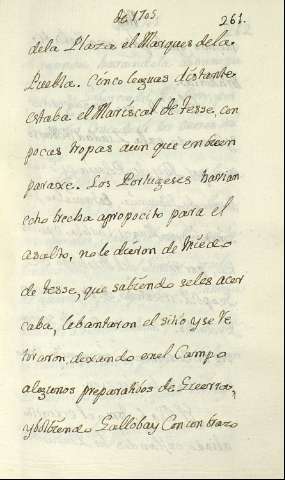 de 1705
261.
de la Plaza el Marques de la
Puebla. Cinco leguas distante
estaba el Mariscal de Tesse, con
pocas tropas aun que en buen
paraxe. Los Portugeses havian
echo brecha apropocito para el
asalto, no le dieron de miedo
de Tesse, que sabiendo se les acer
caba, lebantaron el sitio y se re
tiraron, dexando en el Campo
algunos preparativos de Guerra,
Gallobay Con un brazo